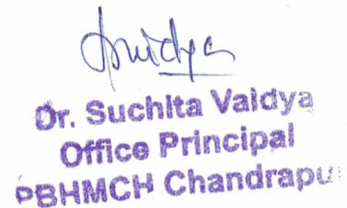 Dr. Suchita Vaidya
Office Principal
PBHMCH Chandrapur